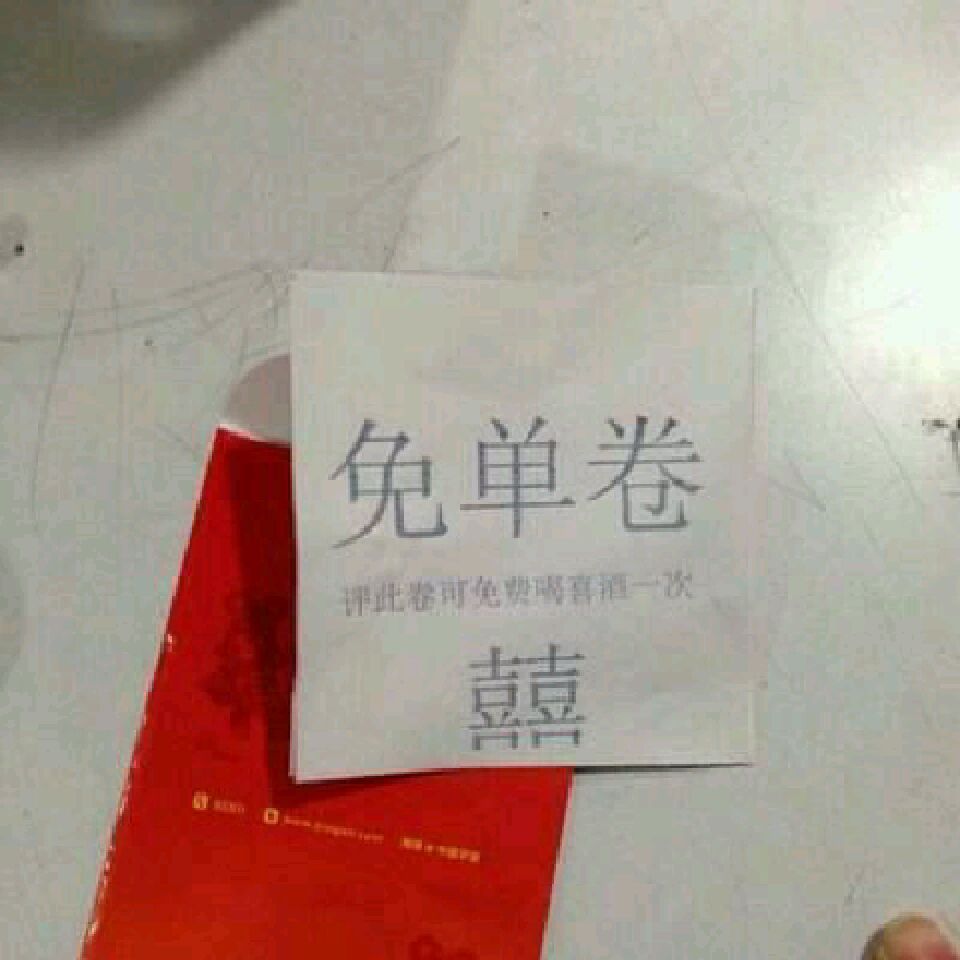 免单卷
评此卷可免费喝喜酒一次
囍